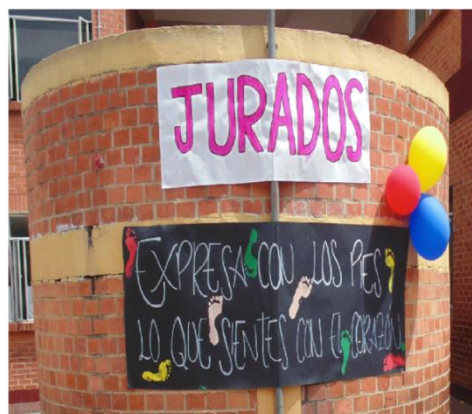 JURADOS
EXPRESA CON LOS PIES
LO QUE SIENTES CON EL CORAZÓN